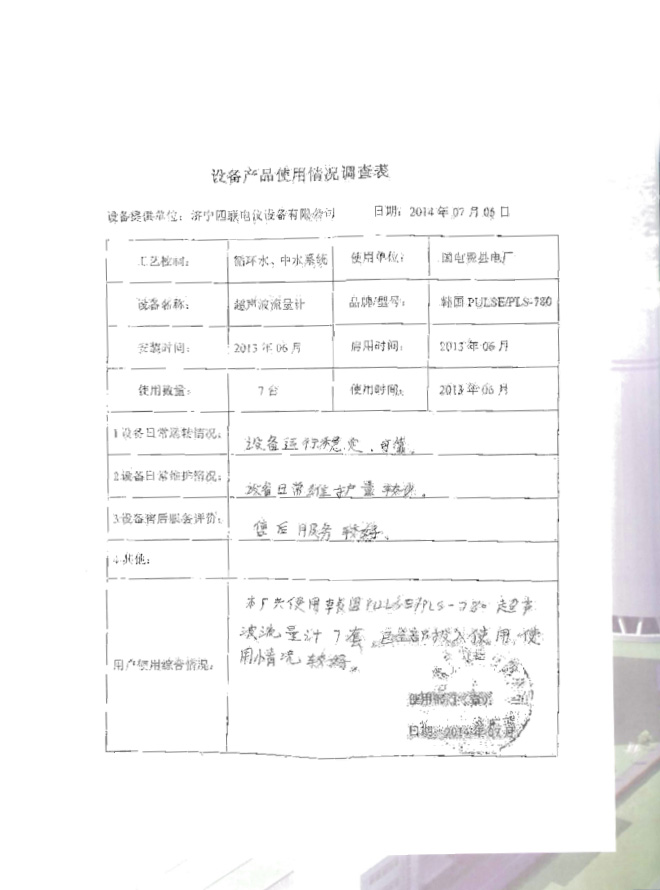 设备产品使用情况调查表
设备提供单位：济宁四联电仪设备有限公司 日期：2014年07月06日
工艺控制： 循环水、中水系统 使用单位： 国电费县电厂
设备名称： 超声波流量计 品牌/型号： 韩国PULSE/PLS-780
安装时间： 2013年06月 启用时间： 2013年06月
使用数量： 7台 使用时间： 2013年06月
1设备日常运转情况： 设备运行稳定，可靠。
2设备日常维护情况： 设备日常维护量较少。
3设备售后服务评价： 售后服务较好、
4其他：
用户使用综合情况：
本厂共使用韩国PULSE/PLS-780超声
波流量计7套，已全部投入使用，使
用情况较好。
日期：2014年